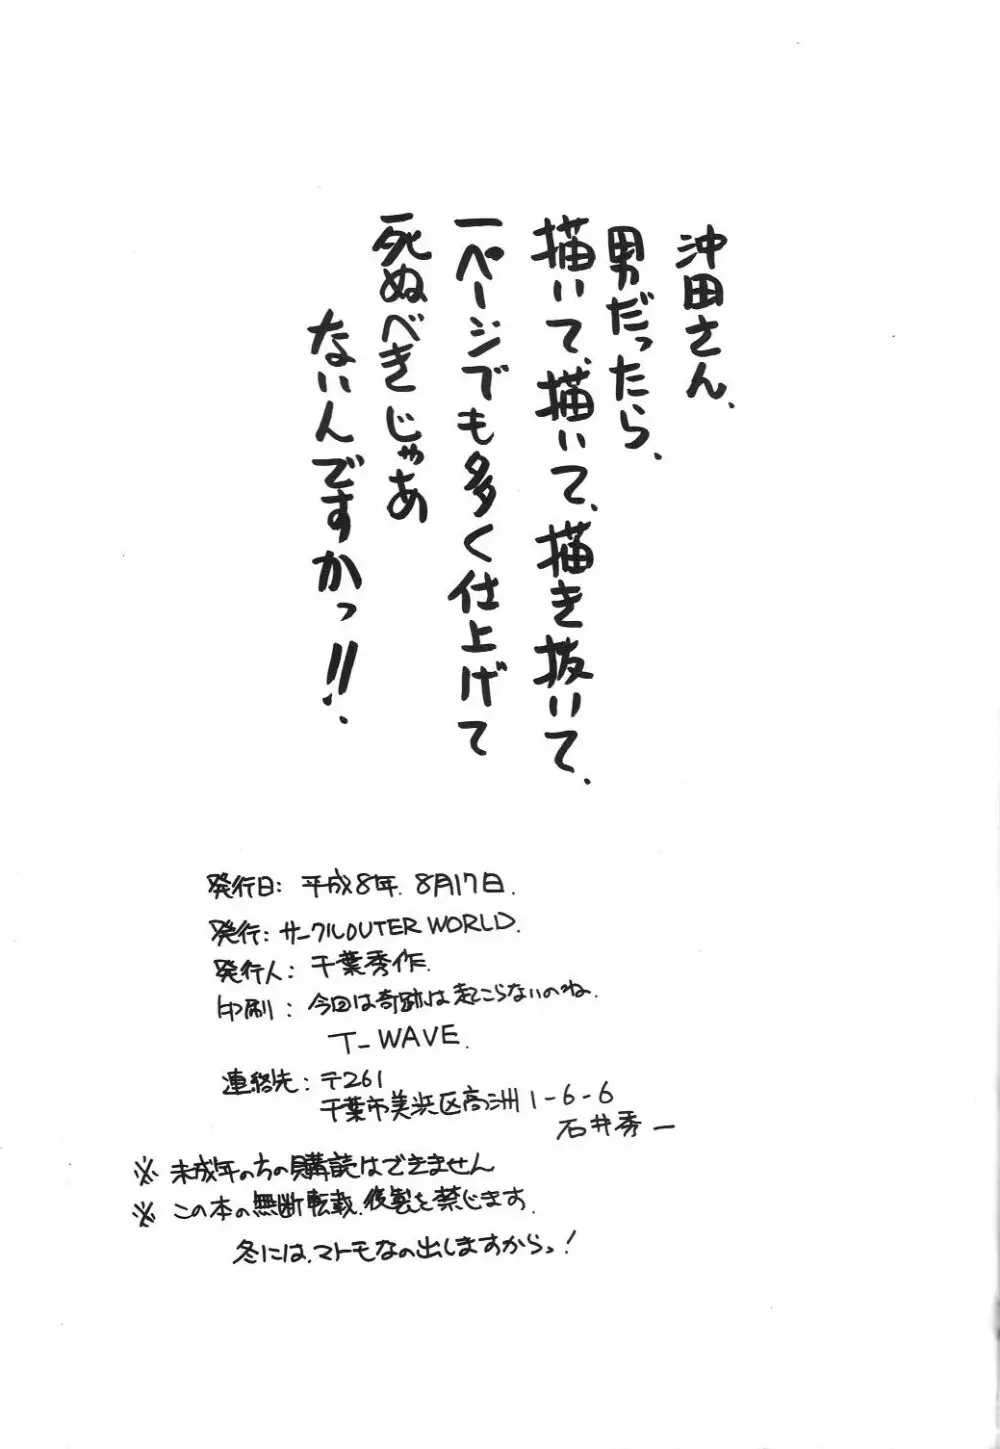 沖田さん、
男だったら、
描いて、描いて、描き抜いて、
一ページでも多く仕上げて
死ぬべきじゃあ
ないんですかっ!!
発行日: 平成8年. 8月17日.
発行: サークルOUTER WORLD.
発行人: 千葉秀作.
印刷: 今回は奇跡は起こらないのね.
T-WAVE.
連絡先: 〒261
千葉市美浜区高洲1-6-6
石井秀一
※ 未成年の方の購読はできません
※ この本の無断転載、複製を禁じます.
冬には、マトモなの出しますからっ!